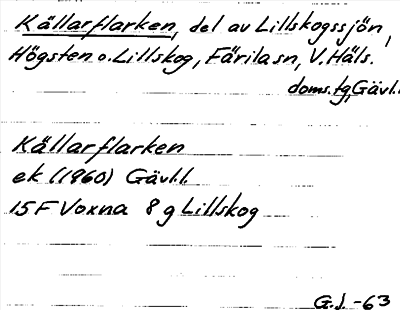 Källarflarken, del av Lillskogssjön,
Högsten o. Lillskog, Färila sn, V. Häls.
doms.tg, Gävl.l.
Källarflarken
ek (1960) Gävl.l.
15 F Voxna 8 g Lillskog
G.J. -63